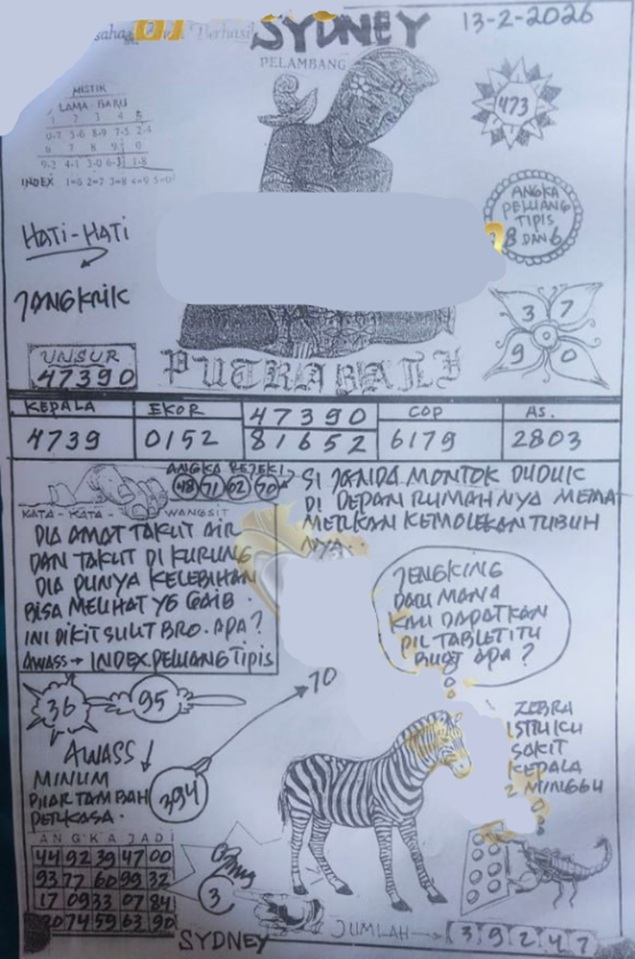 SYDNEY
13-2-2026
PELAMBANG
MISTIK
LAMA - BARU
1 2 3 4 5
0-7 5-6 8-9 7-5 2-4
6 7 8 9 0
9-2 4-1 3-0 6-3 1-8
INDEX 1=6 2=7 3=8 4=9 5=0
473
ANGKA
PELUANG
TIPIS
8 DAN 6
HATI-HATI
JANGKRIK
3 7
9 0
UNSUR
47390
PUTRA BALI
KEPALA EKOR 47390 COP AS.
4739 0152 81652 6179 2803
ANGKA REJEKI
48 71 02 70
KATA - KATA WANGSIT
DIA AMAT TAKUT AIR
DAN TAKUT DI KURUNG
DIA PUNYA KELEBIHAN
BISA MELIHAT YG GAIB
INI DIKIT SULIT BRO. APA?
AWASS → INDEX.PELUANG TIPIS
SI JANDA MONTOK DUDUK
DI DEPAN RUMAHNYA MEMAT
METIKAN KEMOLEKAN TUBUH
NYA..
JENGKING
DARI MANA
KAU DAPATKAN
PIL TABLET ITU
BUAT APA?
36
95
70
AWASS
MINUM
BIAR TAMBAH
PERKASA.
394
ZEBRA
ISTRIKU
SAKIT
KEPALA
2 MINGGU
ANGKA JADI
44 92 39 47 00
93 77 60 99 32
17 09 33 07 84
20 74 59 63 90
3
SYDNEY
JUMLAH → 3 9 2 4 7